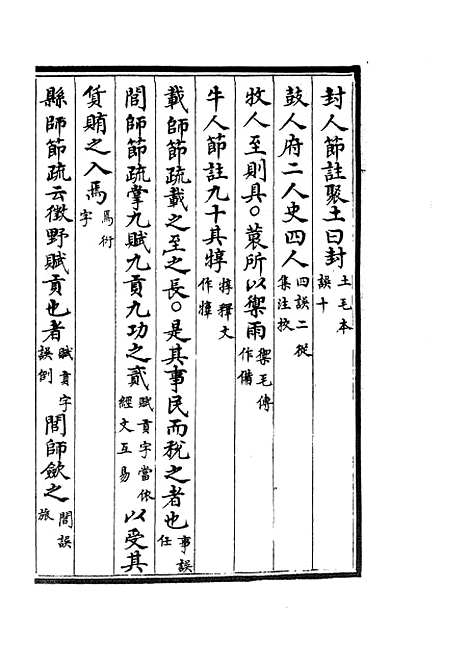 封人節註聚土曰封土毛本誤十
鼓人府二人史四人四誤二從集注挍
牧人至則具○蓑所以禦雨禦毛傳作備
牛人節註九十其犉犉釋文作㹊
載師節疏載之至之長○是其事民而稅之者也事誤任
閭師節疏掌九賦九貢九功之貳賦貢字當依經文互易以受其
貨賄之入焉焉衍字
縣師節疏云徵野賦貢也者賦貢字誤倒閭師斂之閭誤旅